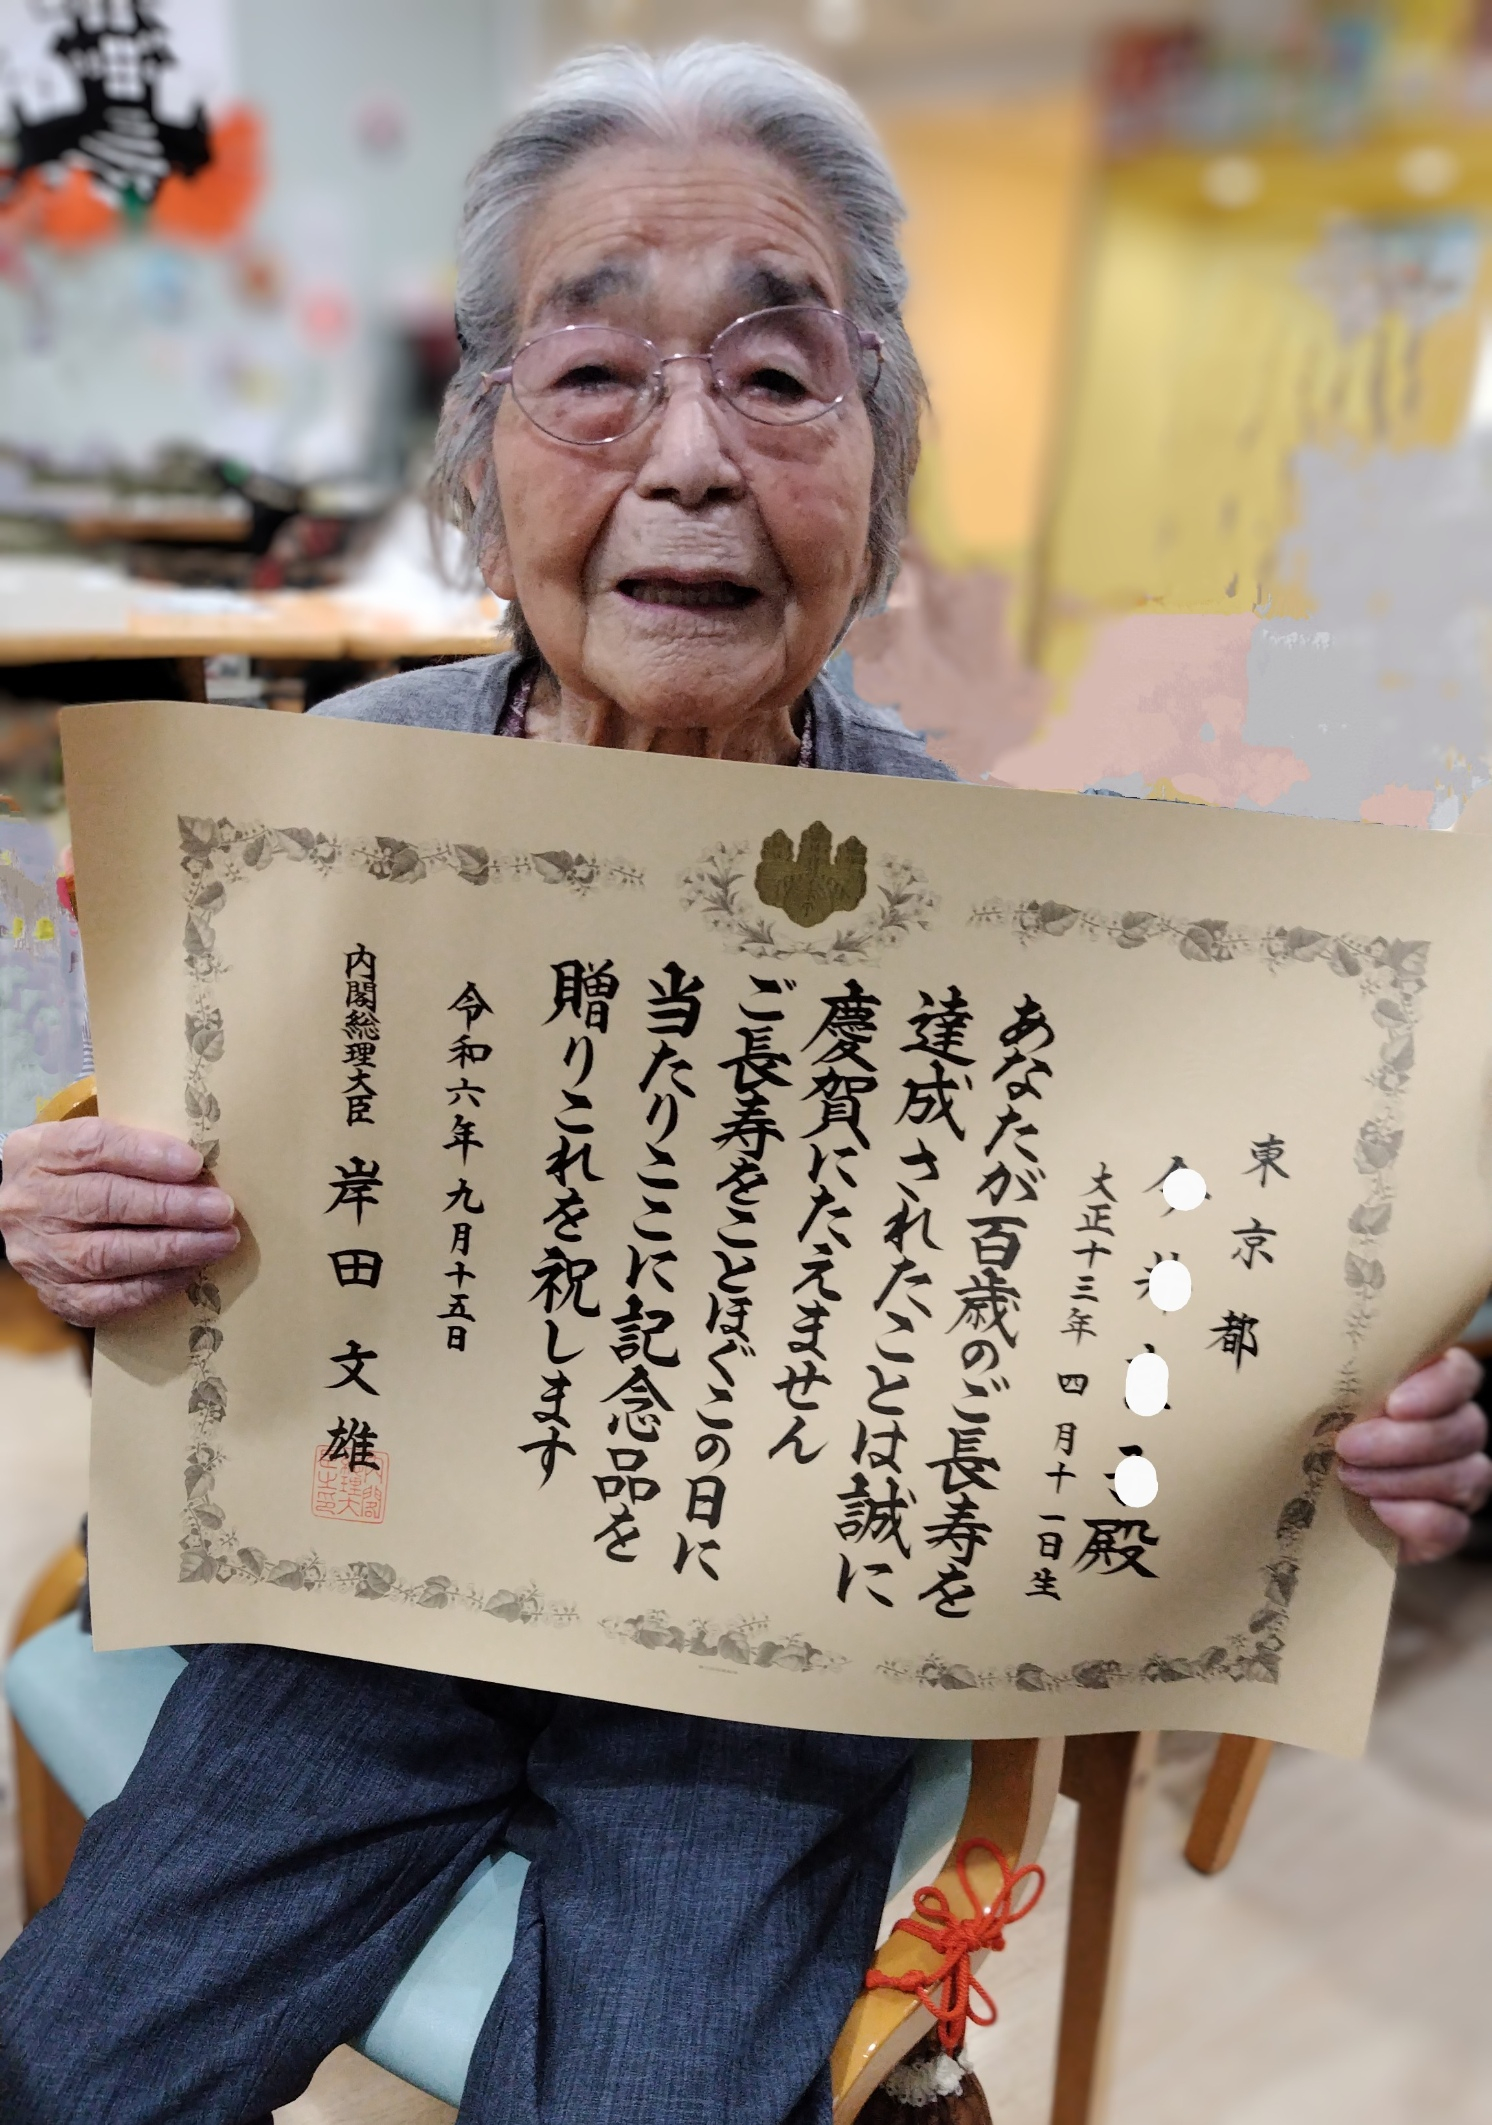 東京都
殿
大正十三年四月十一日生
あなたが百歳のご長寿を
達成されたことは誠に
慶賀にたえません
ご長寿をことほぐこの日に
当たりここに記念品を
贈りこれを祝します
令和六年九月十五日
内閣総理大臣 岸田文雄